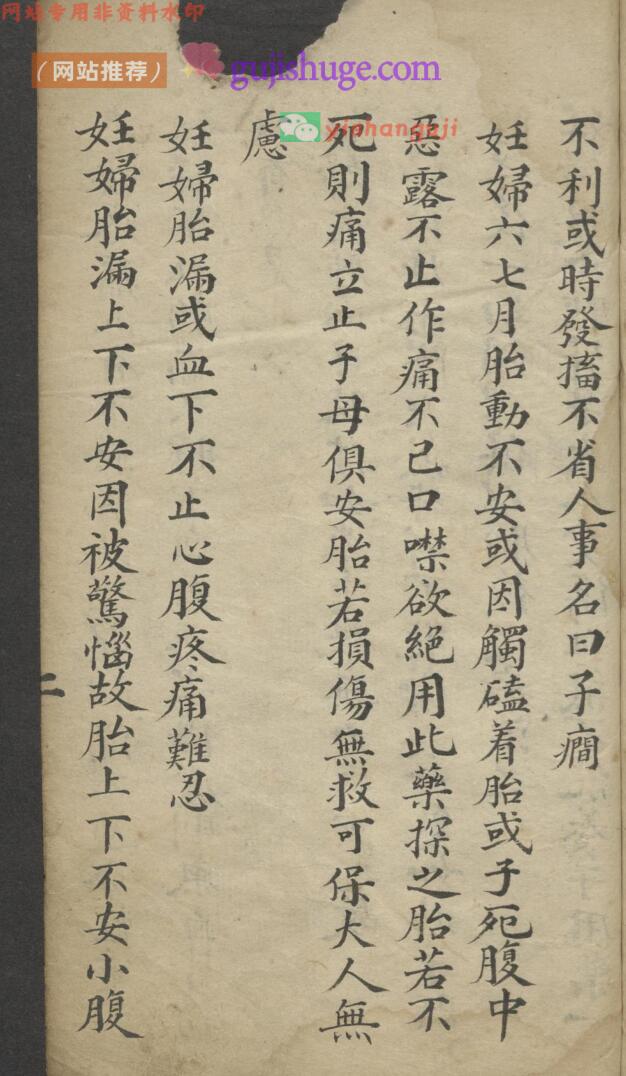 网站专用非资料水印
（网站推荐）
gujishuge.com
yishanguji
不利或時發搐不省人事名曰子癎
妊婦六七月胎動不安或因觸磕着胎或子死腹中
惡露不止作痛不已口噤欲絕用此藥探之胎若不
死則痛立止子母俱安胎若損傷無救可保大人無
慮
妊婦胎漏或血下不止心腹疼痛難忍
妊婦胎漏上下不安因被驚惱故胎上下不安小腹
二